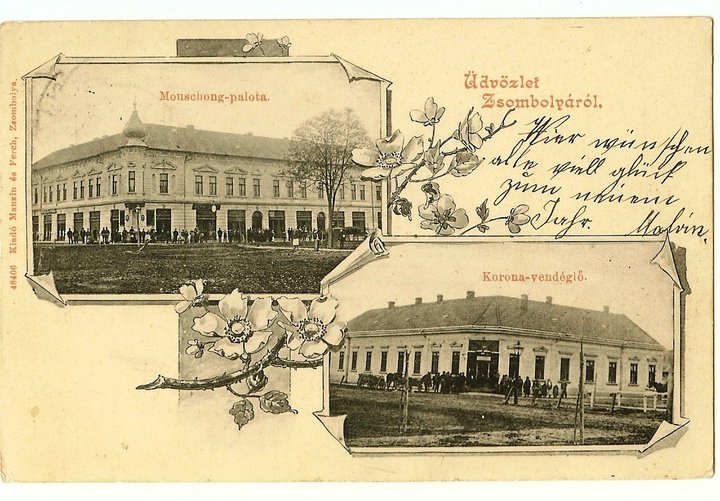 Mouschong-palota.
Üdvözlet
Zsombolyáról.
Wier wünschen
alle viell glück
zum neuem
Jahr.
Korona-vendéglő.
48406 Kiadó Manzin és Perch, Zsombolya.